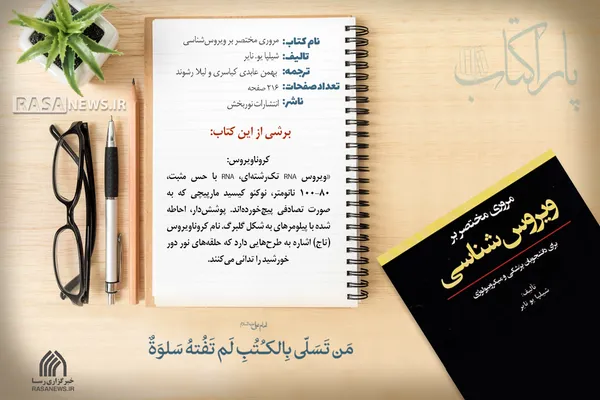 نام کتاب: مروری مختصر بر ویروس‌شناسی
تالیف: شیلیا یو. نایر
ترجمه: بهمن عابدی کیاسری و لیلا رشوند
تعداد صفحات: ۲۱۶ صفحه
ناشر: انتشارات نوربخش
برشی از این کتاب:
کروناویروس:
«ویروس RNA تک‌رشته‌ای، RNA با حس مثبت،
۸۰-۱۰۰ نانومتر، نوکئو کپسید مارپیچی که به
صورت تصادفی پیچ‌خورده‌اند. پوشش‌دار، احاطه
شده با پپلومرهای به شکل گلبرگ. نام کروناویروس
(تاج) اشاره به طرح‌هایی دارد که حلقه‌های نور دور
خورشید را تداعی می‌کنند.
پاراکتاب
RASANEWS.IR
مروری مختصر بر
ویروس شناسی
برای دانشجویان پزشکی و میکروبیولوژی
تألیف:
شیلیا یو نایر
مَن تَسَلّی بِالکُتُبِ لَم تَفُتهُ سَلوَةٌ
خبرگزاری رسا
RASANEWS.IR